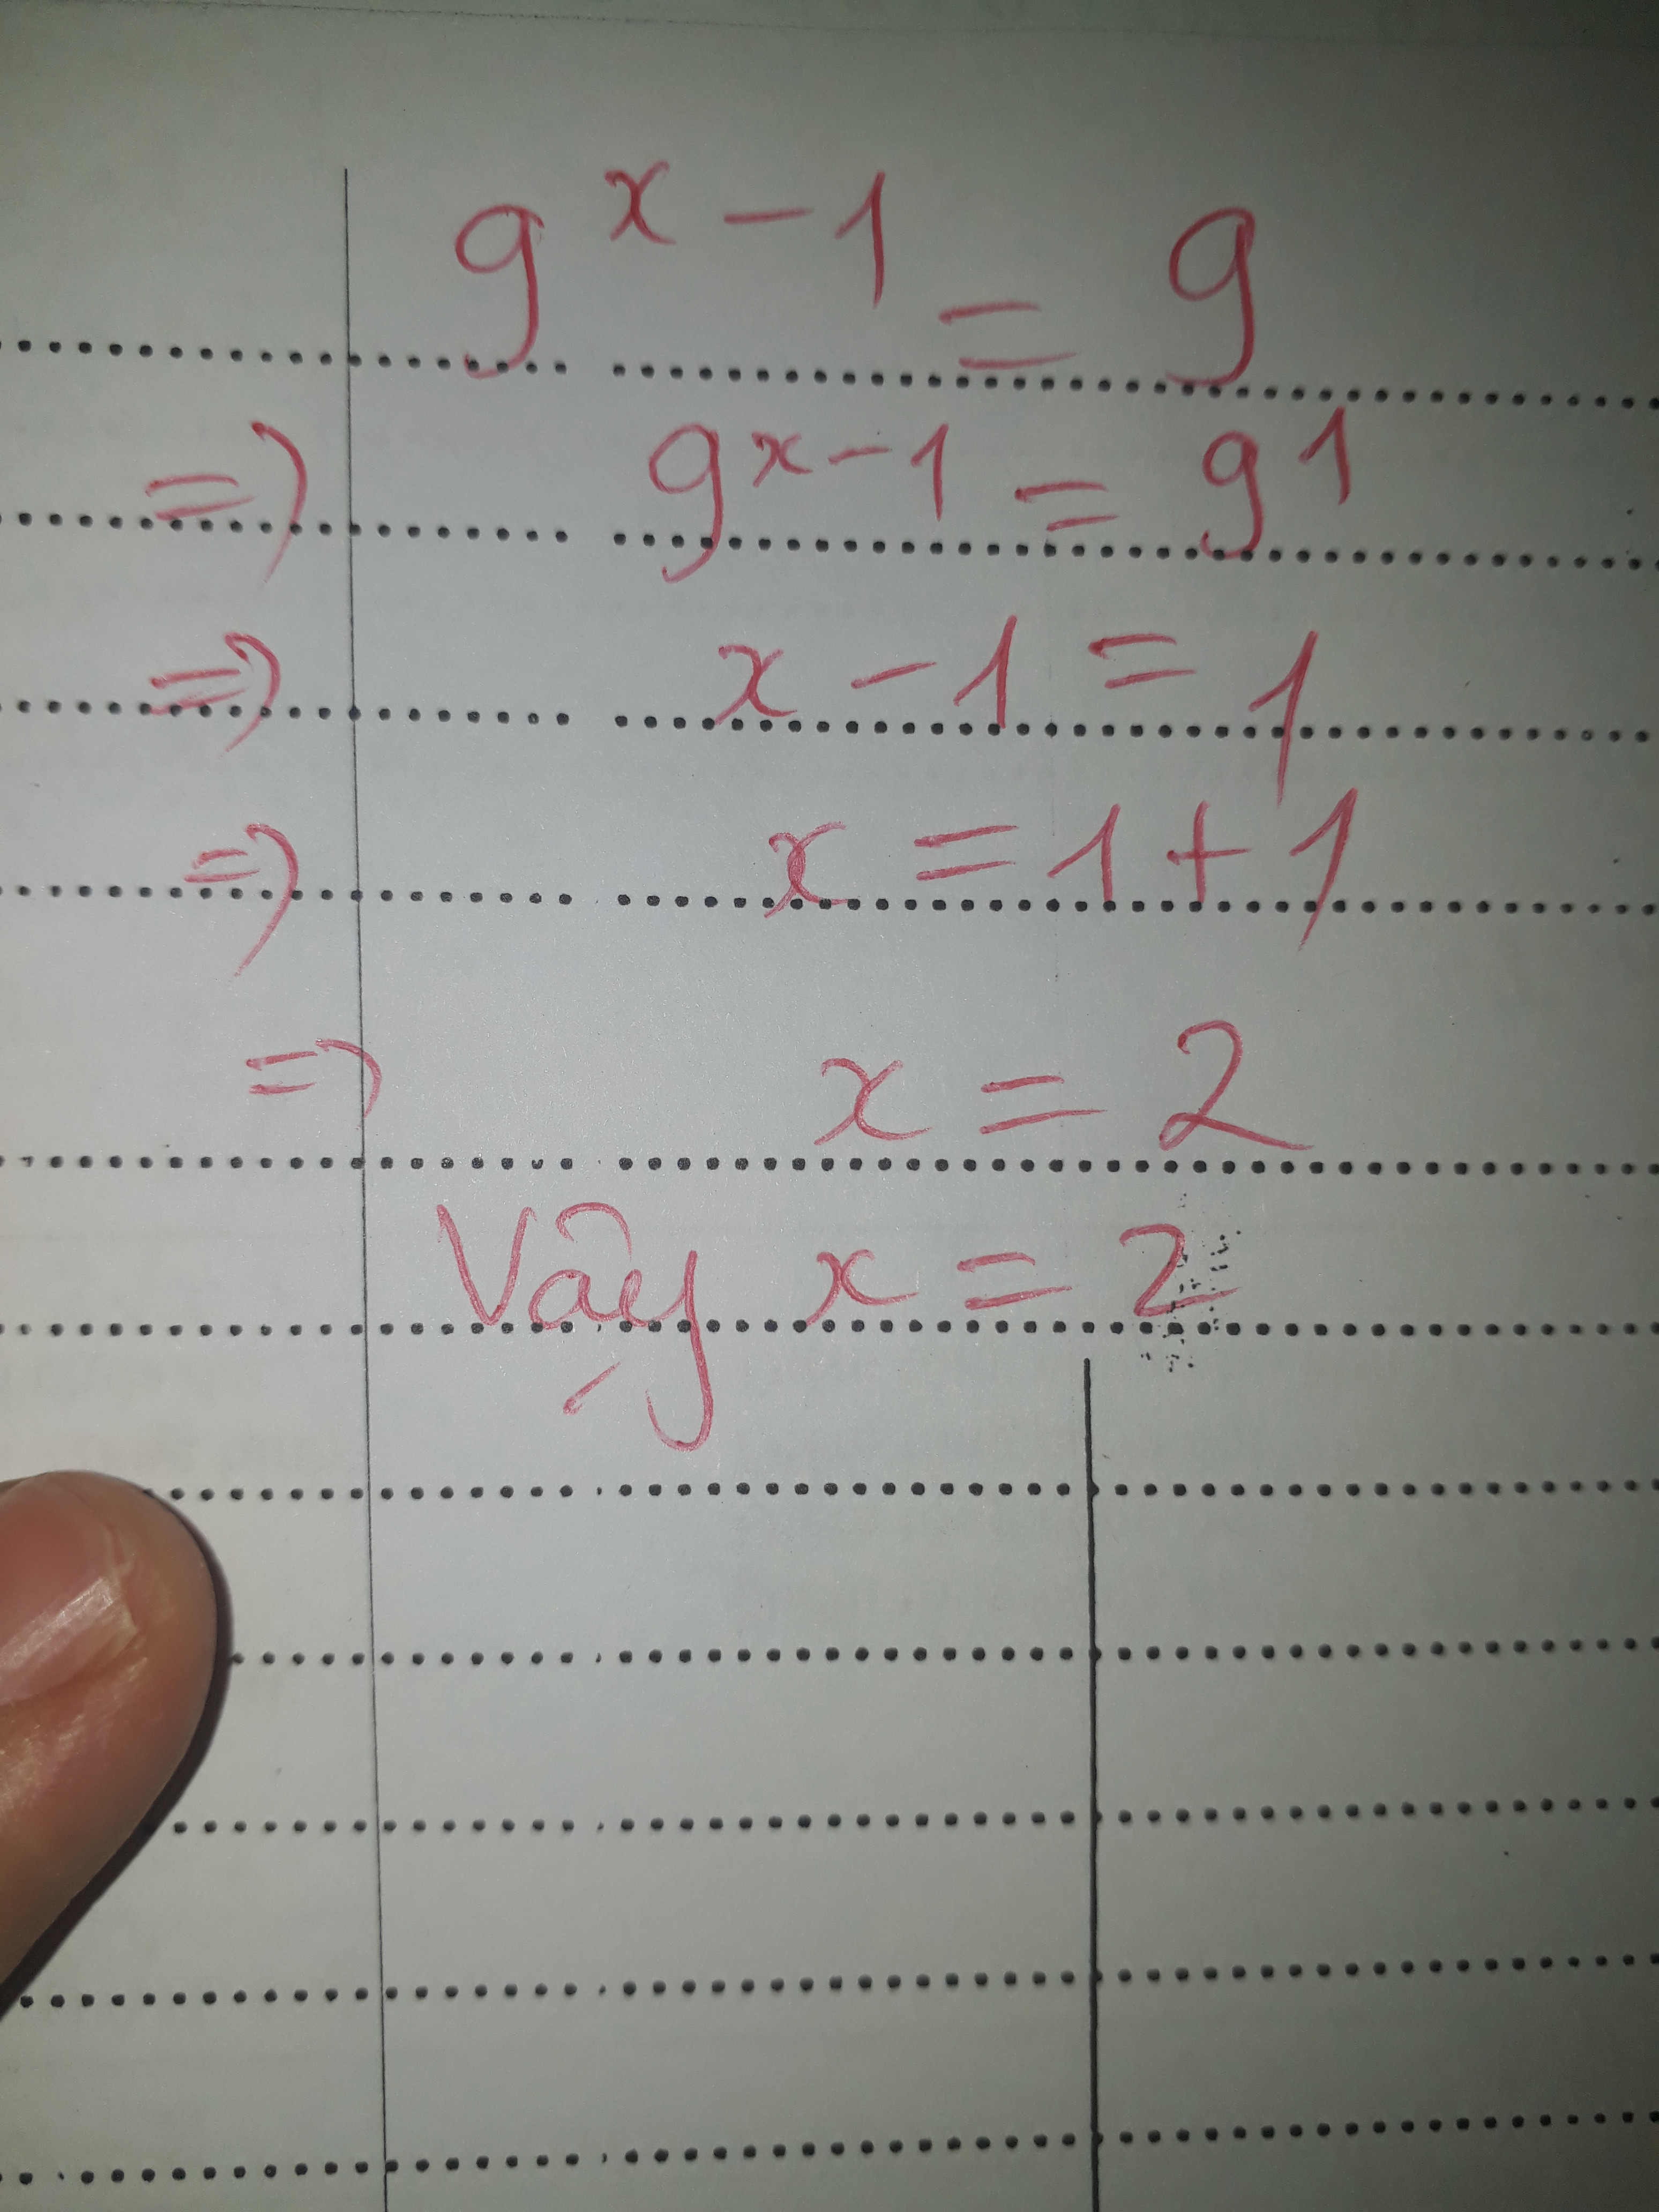 9^x-1 = 9
=> 9^x-1 = 9^1
=> x - 1 = 1
=> x = 1 + 1
=> x = 2
Vậy x = 2